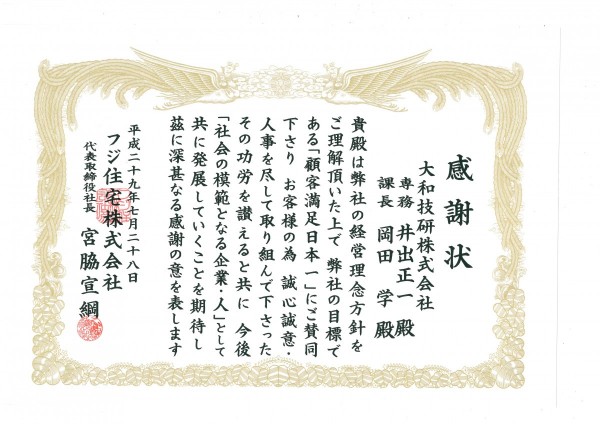 感謝状
大和技研株式会社
専務 井出正一殿
課長 岡田 学 殿
貴殿は弊社の経営理念方針を
ご理解頂いた上で 弊社の目標で
ある「顧客満足日本一」にご賛同
下さり お客様の為 誠心誠意・
人事を尽して取り組んで下さった
その功労を讃えると共に 今後
「社会の模範となる企業・人」として
共に発展していくことを期待し
茲に深甚なる感謝の意を表します
平成二十九年七月二十八日
フジ住宅株式会社
代表取締役社長 宮脇宣綱